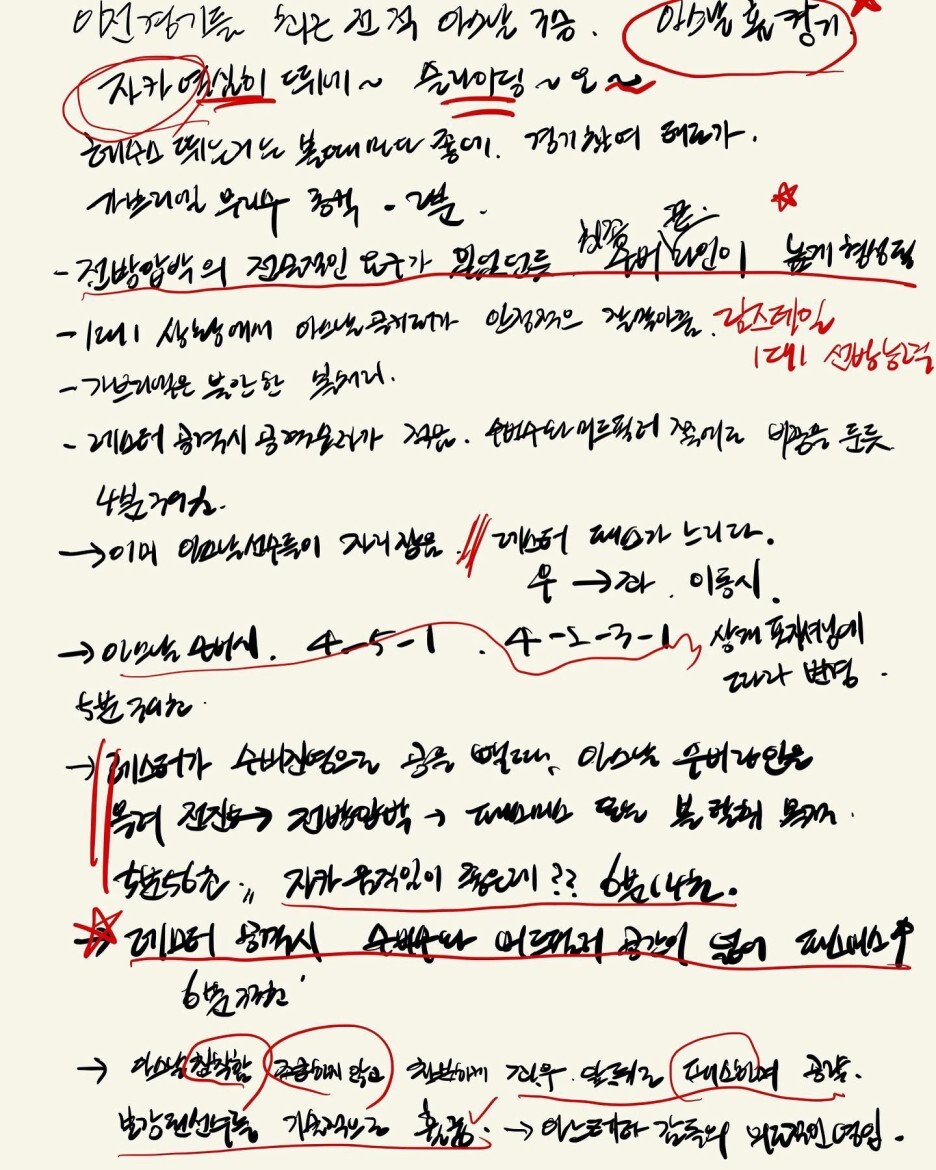 이전경기들 최근 전적 아스날 우승. 아스날 홈경기.
자카 열심히 뛰네~ 슬라이딩~오~
헤수스 뛰는거는 볼때마다 좋네. 경기참여
가브리엘 무리수 . 2분.
- 전방압박의 전술적인 요구가 수비라인이 높게 형성됨
- 1대1 상황에서 아스날 골키퍼가 안정적으로 막음. 람스데일
1대1 선방능력
- 가브리엘은 불안한 볼처리.
- 레스터 공격시 공격숫자가 적음. 수비수와 미드필더 쪽에 비중을 둔듯
4분
→ 이미 아스날선수들이 자리잡음. // 레스터 패스가 느리다.
우 → 좌. 이동시.
→ 아스날 수비시. 4-5-1. 4-2-3-1 상대 포지셔닝에
따라 변형.
5분
→ 레스터가 수비진영으로 공을 빼면, 아스날 수비라인을
올려 전진 → 전방압박 → 패스미스 또는 볼 탈취 목적.
5분56초. 자카 움직임이 좋은데?? 6분14초.
→ 레스터 공격시 수비수와 미드필더 공간이 넓어 패스미스↑
6분
→ 아스날 침착함 조급하지 않고 차분하게 좌우 패스하며 공격.
선수들 기술적으로 훌륭. → 아르테타 감독의 영입.